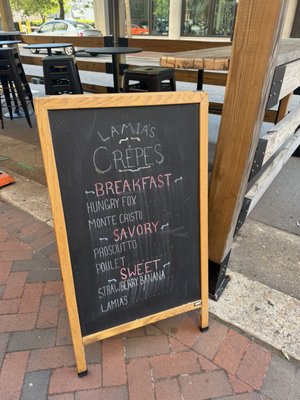 LAMIA'S
CRÊPES
BREAKFAST
HUNGRY FOX
MONTE CRISTO
SAVORY
PROSCIUTTO
POULET
SWEET
STRAWBERRY BANANA
LAMIAS